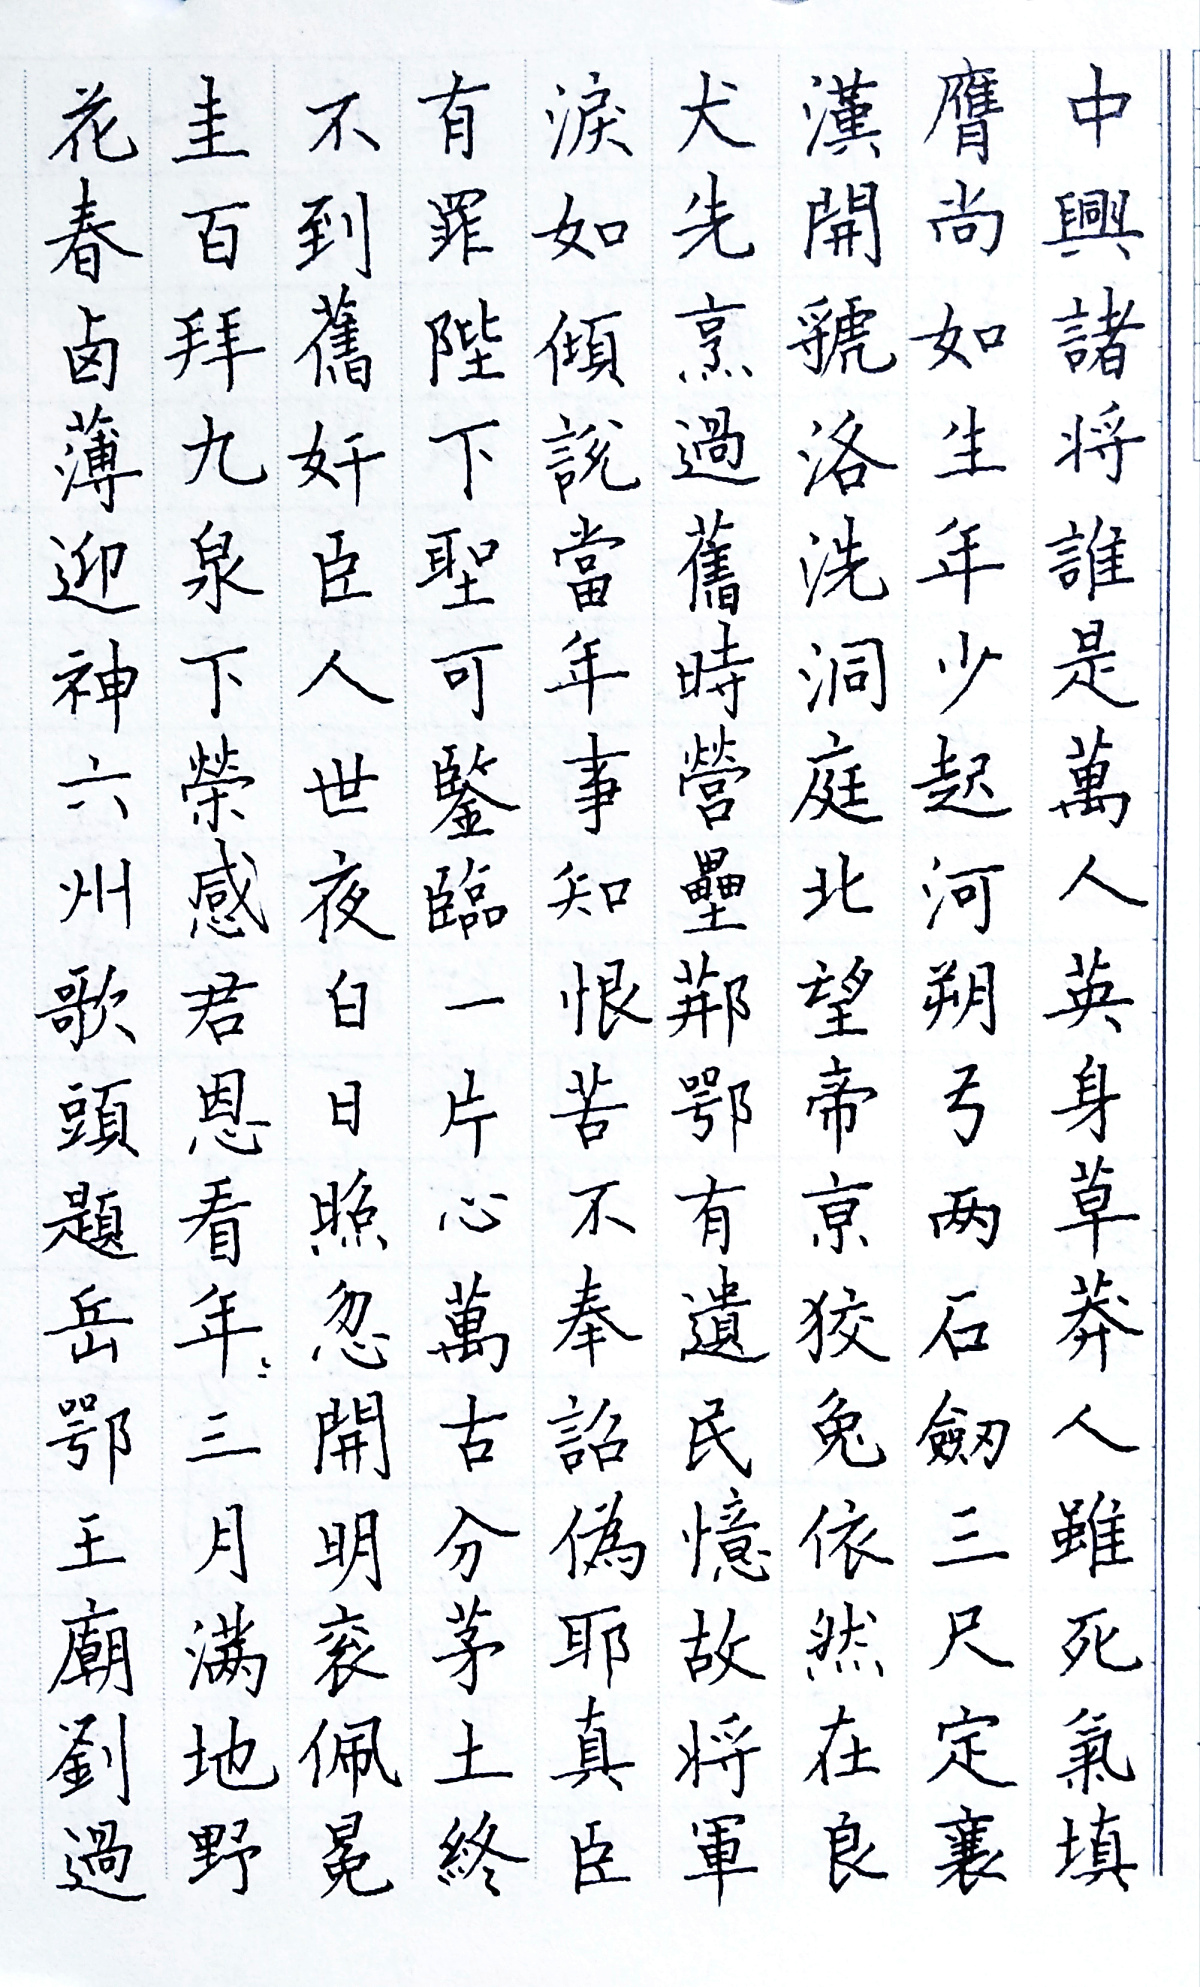 中興諸将誰是萬人英身草莽人雖死氣填
膺尚如生年少起河朔弓两石劔三尺定襄
漢開虢洛洗洞庭北望帝亰狡兔依然在良
犬先烹過舊時營壘荊鄂有遺民憶故将軍
淚如傾說當年事知恨苦不奉詔偽耶真臣
有罪陛下聖可鑒臨一片心萬古分茅土終
不到舊奸臣人世夜白日照忽開明衮佩冕
圭百拜九泉下榮感君恩看年〻三月满地野
花春卤薄迎神六州歌頭題岳鄂王廟劉過